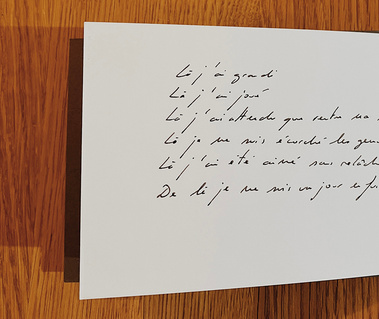 Là j'ai grandi
Là j'ai joué
Là j'ai attendu que rentre ma
Là je me suis écorché les gen
Là j'ai été aimé sans relâch
De là je me suis un jour enfu